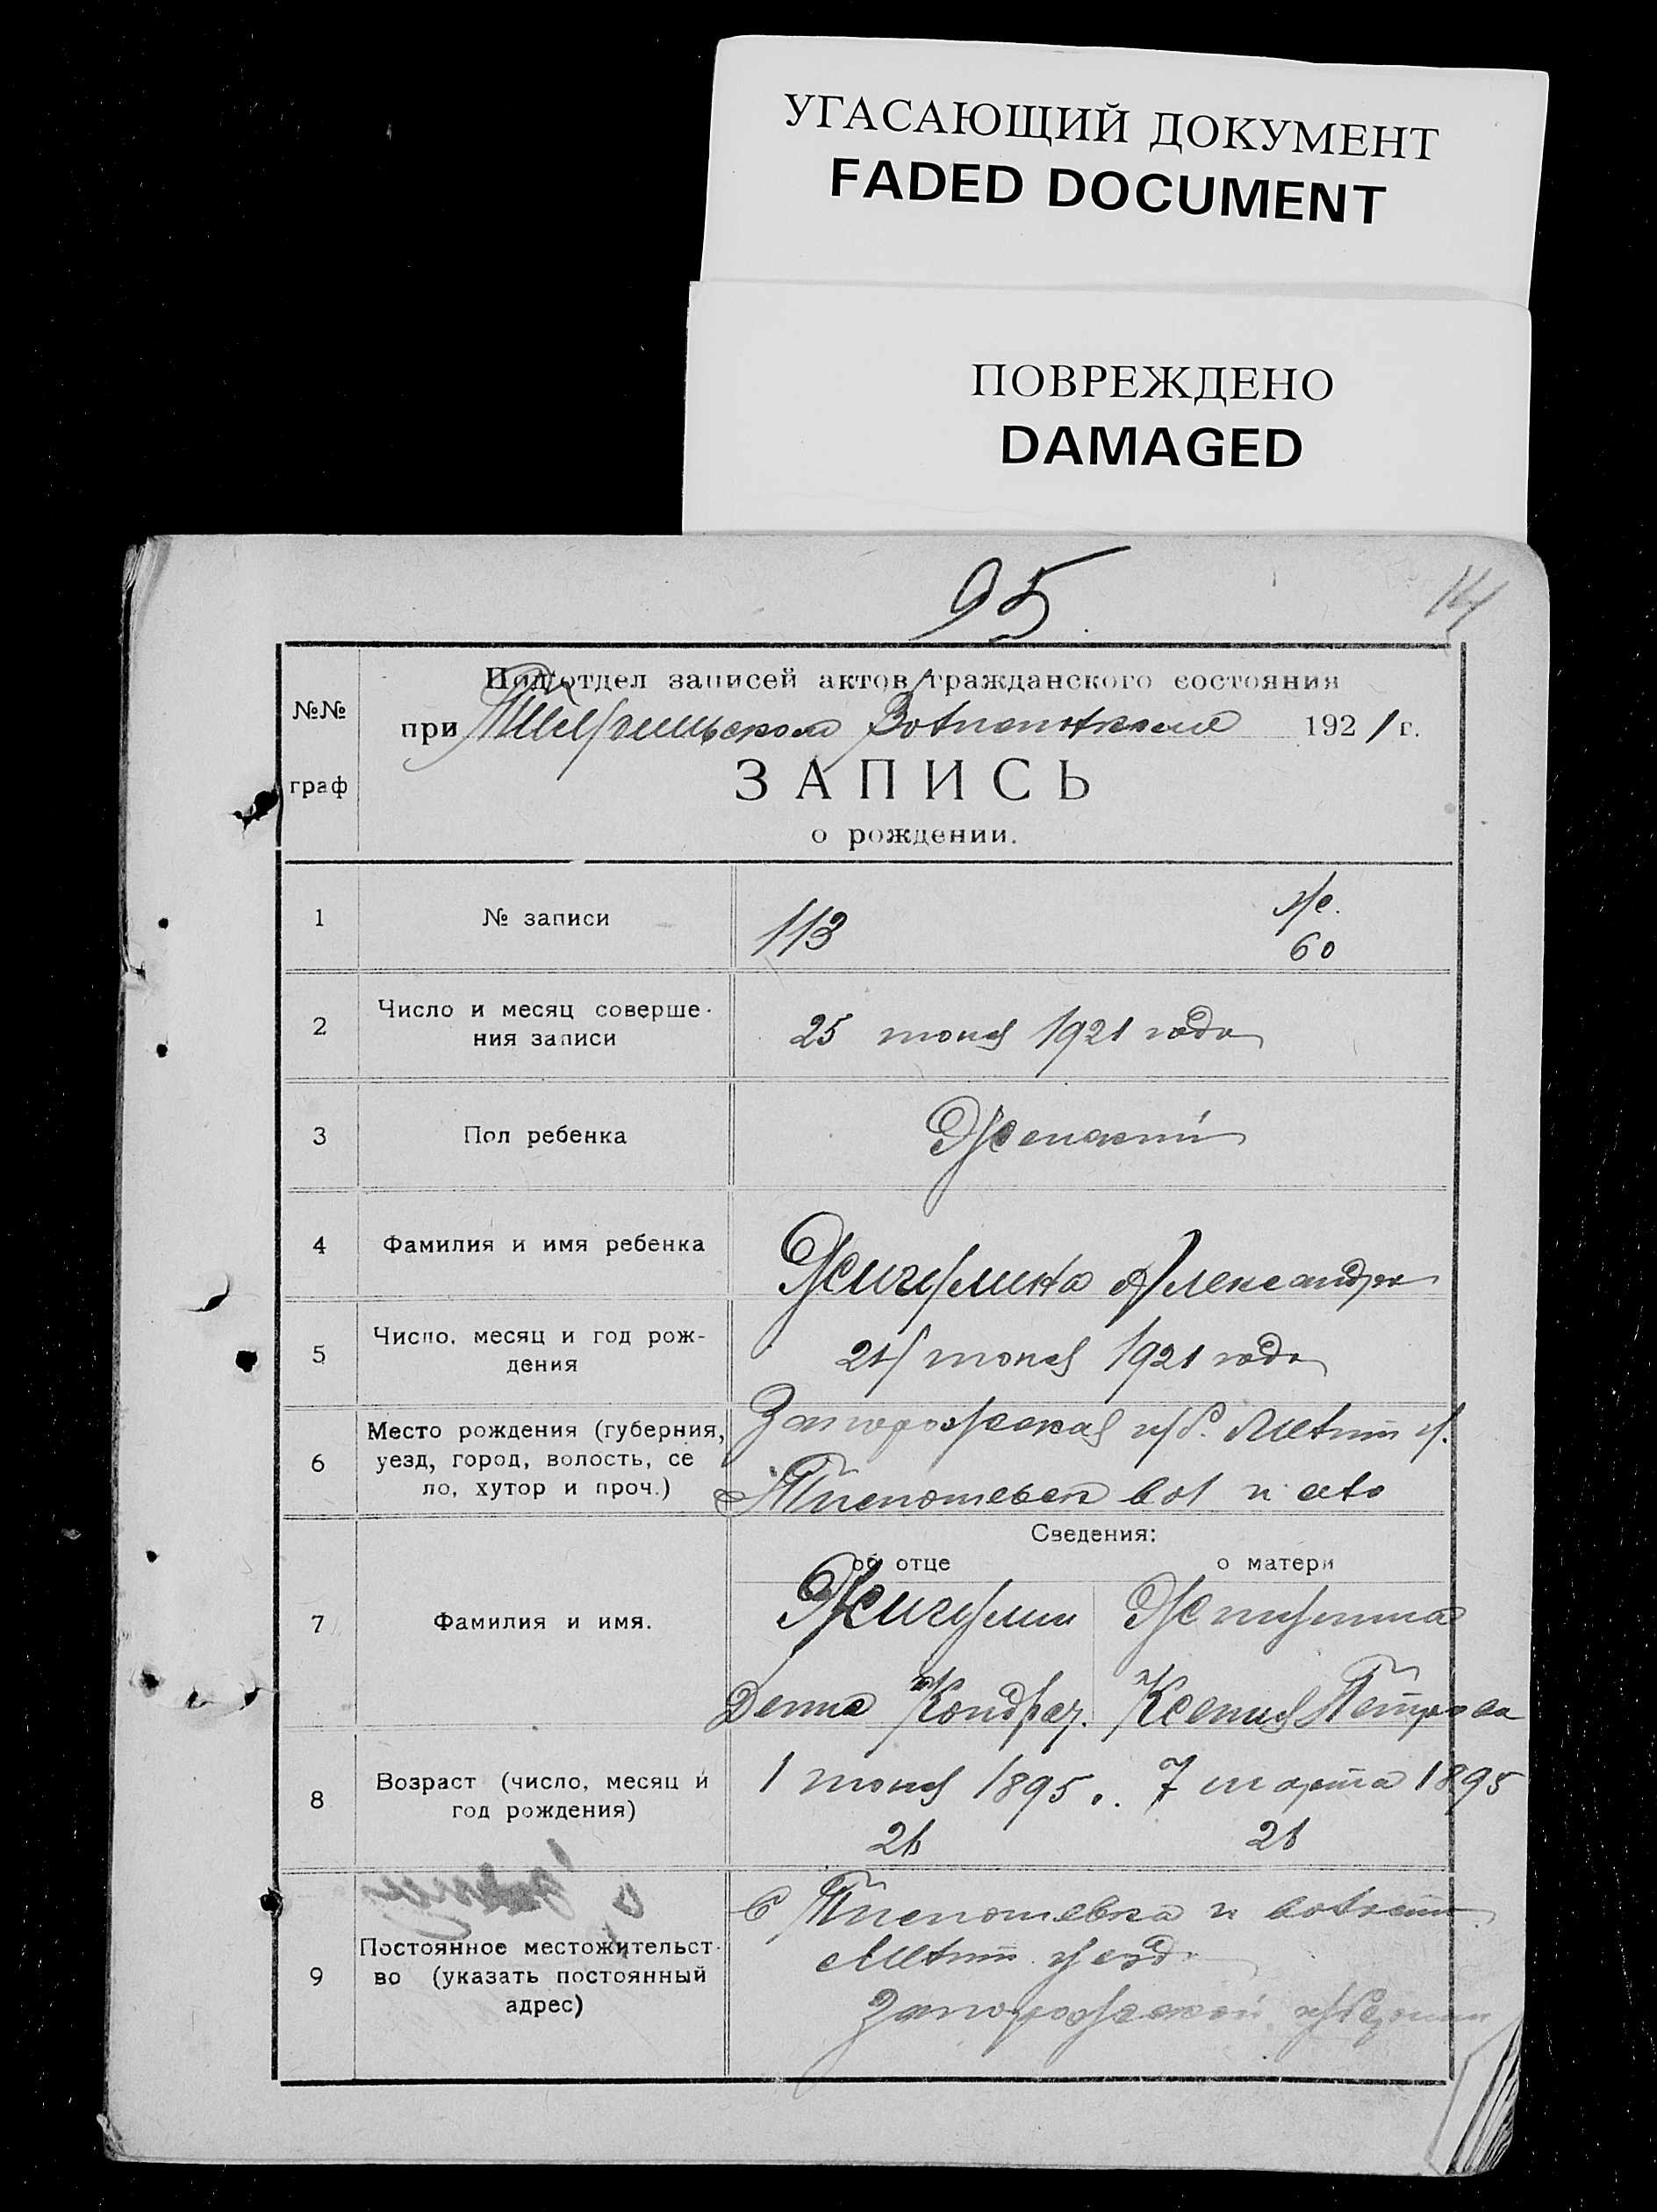 УГАСАЮЩИЙ ДОКУМЕНТ
FADED DOCUMENT
ПОВРЕЖДЕНО
DAMAGED
95
№№
граф
Подотдел записей актов гражданского состояния
при 1921 г.
ЗАПИСЬ
о рождении.
1
№ записи
113
60
2
Число и месяц соверше-
ния записи
25 июня 1921 года
3
Пол ребенка
Женский
4
Фамилия и имя ребенка
Жигулина Александра
5
Число, месяц и год рож-
дения
июня 1921 года
6
Место рождения (губерния,
уезд, город, волость, се
ло, хутор и проч.)
Запорожская губ. Мелит у.
вол и село
Сведения:
об отце
о матери
7
Фамилия и имя.
Жигулин
Жигулина
Кондрат.
Ксения Петрова
8
Возраст (число, месяц и
год рождения)
1 июня 1895
7 марта 1895
26
26
9
Постоянное местожительст-
во (указать постоянный
адрес)
С
Мелит. уезда
Запорожской губернии